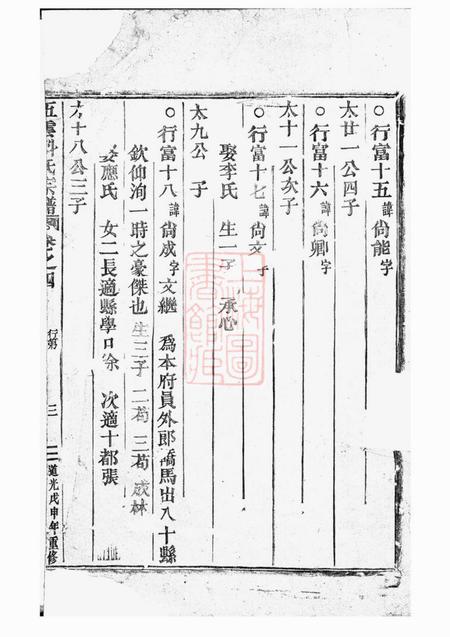 ○行富十五 諱 尙能 字
太廿一公四子
○行富十六 諱 尙卿 字
太十一公次子
○行富十七 諱 尙文 子
娶李氏 生一子 承心
太九公 子
○行富十八 諱 尙成 字 文繼 爲本府員外郎 馬出入十縣
欽仰洵一時之豪傑也 生三子 二苟 三苟 成林
娶應氏 女二長適縣學 徐 次適十都張
十八公三子
五雲 氏宗譜 卷之四 行第 三 道光戊申年重修
上海圖書館藏